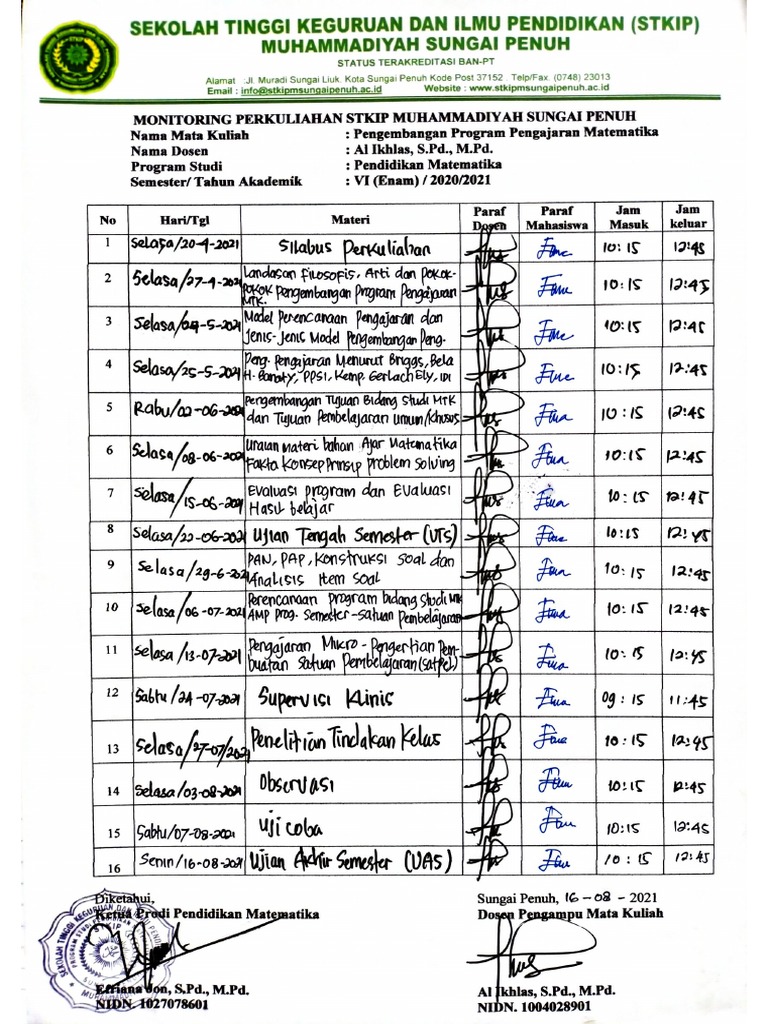 SEKOLAH TINGGI KEGURUAN DAN ILMU PENDIDIKAN (STKIP)
MUHAMMADIYAH SUNGAI PENUH
STATUS TERAKREDITASI BAN-PT
Alamat :Jl. Muradi Sungai Liuk. Kota Sungai Penuh Kode Post 37152 . Telp/Fax. (0748) 23013
Email : info@stkipmsungaipenuh.ac.id Website : www.stkipmsungaipenuh.ac.id
MONITORING PERKULIAHAN STKIP MUHAMMADIYAH SUNGAI PENUH
Nama Mata Kuliah : Pengembangan Program Pengajaran Matematika
Nama Dosen : Al Ikhlas, S.Pd., M.Pd.
Program Studi : Pendidikan Matematika
Semester/ Tahun Akademik : VI (Enam) / 2020/2021
No Hari/Tgl Materi Paraf Dosen Paraf Mahasiswa Jam Masuk Jam keluar
1 Selasa/20-4-2021 Silabus Perkuliahan 10:15 12:45
2 Selasa/27-4-2021 Landasan Filosofis, Arti dan Pokok-
Pokok Pengembangan Program Pengajaran
MTK. 10:15 12:45
3 Selasa/04-5-2021 Model Perencanaan Pengajaran dan
Jenis-Jenis Model Pengembangan Peng. 10:15 12:45
4 Selasa/25-5-2021 Peng. Pengajaran Menurut Briggs, Bela
H. Banaty, PPSI, Kemp, Gerlach Ely, IDI 10:15 12:45
5 Rabu/02-06-2021 Pengembangan Tujuan Bidang Studi MTK
dan Tujuan Pembelajaran umum/khusus 10:15 12:45
6 Selasa/08-06-2021 Uraian Materi bahan Ajar Matematika
Fakta Konsep Prinsip problem solving 10:15 12:45
7 Selasa/15-06-2021 Evaluasi program dan Evaluasi
Hasil belajar 10:15 12:45
8 Selasa/22-06-2021 Ujian Tengah Semester (UTS) 10:15 12:45
9 Selasa/29-6-2021 PAN, PAP, Konstruksi Soal dan
Analisis Item Soal 10:15 12:45
10 Selasa/06-07-2021 Perencanaan program bidang studi MTK
AMP prog. Semester-satuan Pembelajaran 10:15 12:45
11 Selasa/13-07-2021 Pengajaran Mikro-Pengertian Pem-
buatan Satuan Pembelajaran (satpel) 10:15 12:45
12 Sabtu/24-07-2021 Supervisi Klinis 09:15 11:45
13 Selasa/27-07/2021 Penelitian Tindakan Kelas 10:15 12:45
14 Selasa/03-08-2021 Observasi 10:15 12:45
15 Sabtu/07-08-2021 Uji coba 10:15 12:45
16 Senin/16-08-2021 Ujian Akhir Semester (UAS) 10:15 12:45
Diketahui, Sungai Penuh, 16-08-2021
Ketua Prodi Pendidikan Matematika Dosen Pengampu Mata Kuliah
Efriana Jon, S.Pd., M.Pd. Al Ikhlas, S.Pd., M.Pd.
NIDN. 1027078601 NIDN. 1004028901